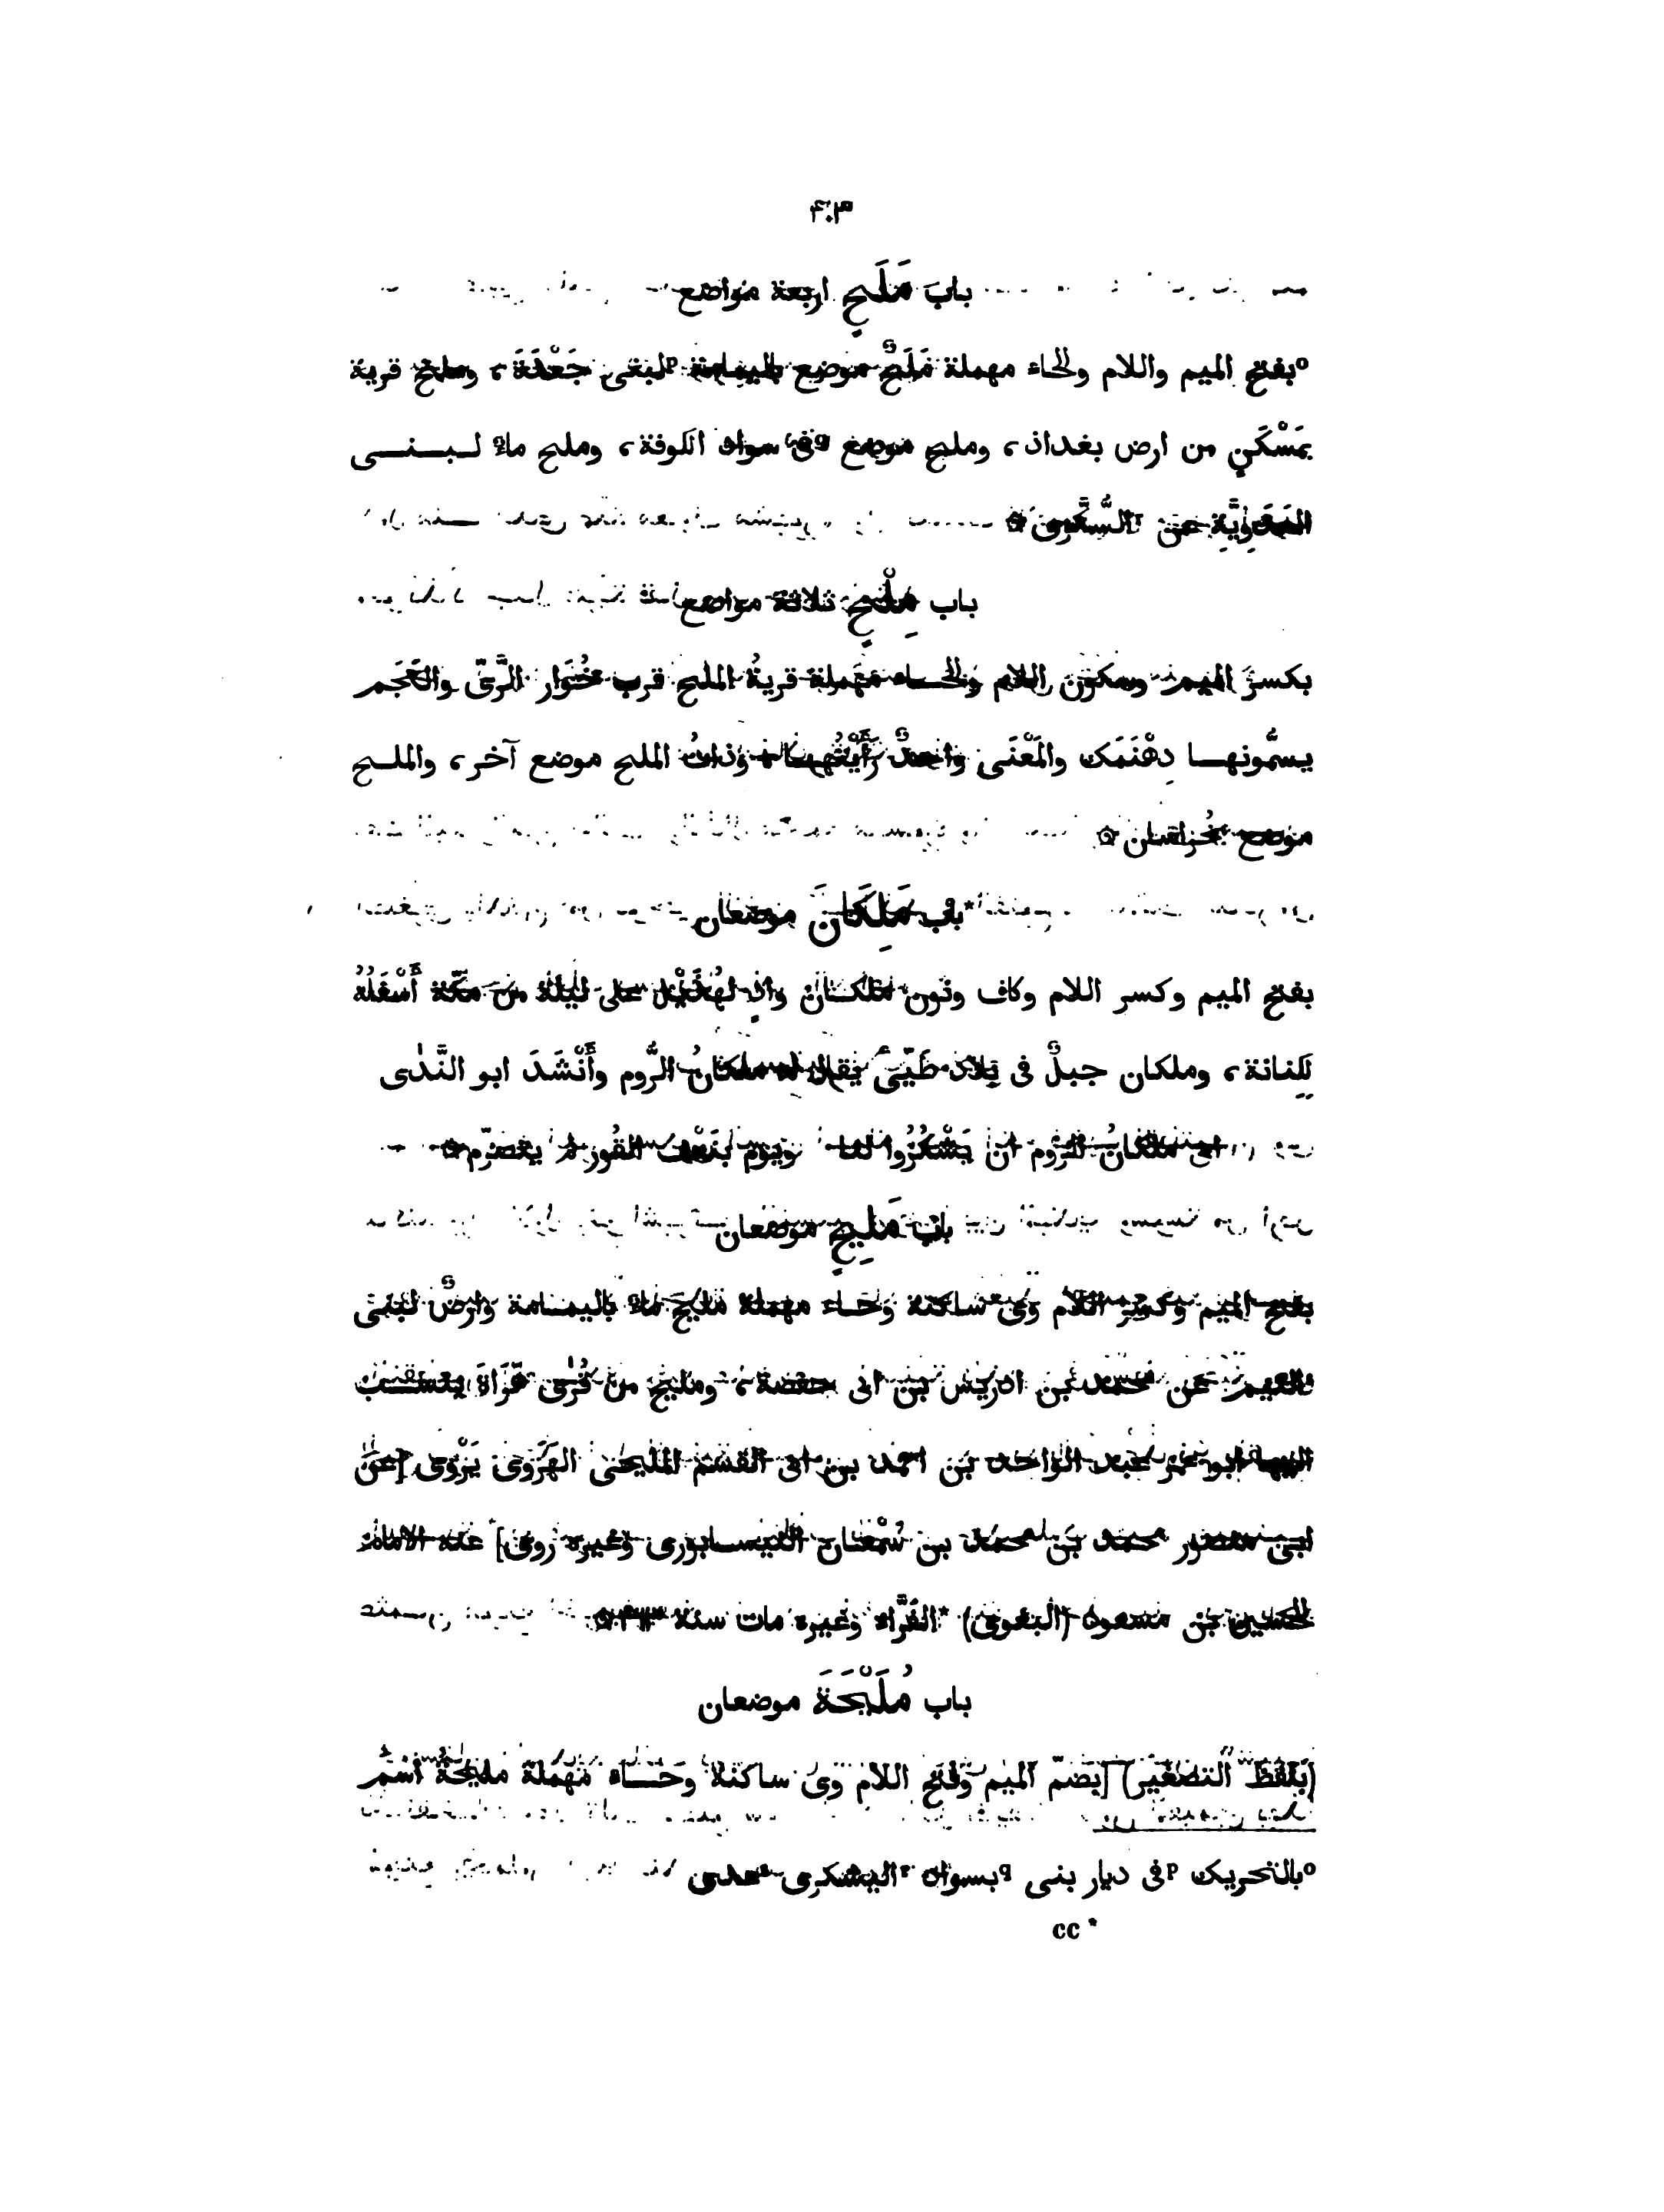 ۴۰۳
باب مَلَحٍ اربعة مواضع
oبفتح الميم واللام والحاء مهملة مَلَحٌ موضع باليمامة pلبنى جَعْدَةَ، وملح قرية
بمَسْكَنٍ من ارض بغداذ، وملح موضع qفى سواد الكوفة، وملح ماء لبنى
العَدَوِيَّةِ عن rالسُّكَّرى ۞
باب مِلْحٍ ثلاثة مواضع
بكسر الميم وسكون اللام والحاء مهملة قريةُ الملح قرب خُوَار الرَّىّ والعَجَم
يسمُّونها دِهْنَمَك والمَعْنَى واحدٌ رَأَيْتُها، وذاتُ الملح موضع آخر، والملح
موضع بخُراسان ۞
*باب مَلِكَانَ موضعان
بفتح الميم وكسر اللام وكاف ونون ملكان وادٍ لهُذَيْل على ليلة من مكّة أَسْفَلُهُ
لِكِنانة، وملكان جبلٌ فى بلاد طَيِّئ يقال له ملكانُ الرُّوم وأَنْشَدَ ابو النَّدَى
ابى ملكانُ الروم ان يَشْكُرُوا لنا ويوم بنَعْف القُور لم يتصرّم ۞
باب مَلِيحٍ موضعان
بفتح الميم وكسر اللام وى ساكنة وحاء مهملة مليح ماء باليمامة وارضٌ لبنى
التيم عن محمد بن ادريس بن ابى حفصة، ومليح من قُرَى هَرَاةَ ينسب
اليها ابو عمر عبد الواحد بن احمد بن ابى القسم المليحى الهَرَوى يَرْوى [عن
ابى منصور محمد بن محمد بن سُمْعان النيسابورى وغيره روى] عنه الامام
الحسين بن مسعود (البغوى) *الفَرَّاء وغيره مات سنة
باب مُلَيْحَةَ موضعان
(بلَفْظ التصغير) [بضمّ الميم وفتح اللام وى ساكنة وحاء مهملة مليحةُ اسم
oبالتحريك pفى ديار بنى qبسواد rاليشكرى
cc *